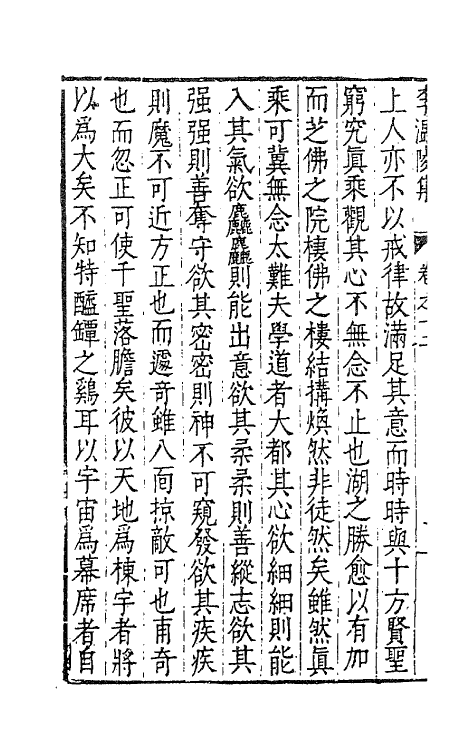 李溫陵集 卷之十二
上人亦不以戒律故滿足其意而時時與十方賢聖
窮究眞乘觀其心不無念不止也湖之勝愈以有加
而芝佛之院棲佛之樓結構煥然非徒然矣雖然眞
乘可冀無念太難夫學道者大都其心欲細細則能
入其氣欲麤麤則能出意欲其柔柔則善縱志欲其
强强則善奪守欲其密密則神不可窺發欲其疾疾
則魔不可近方正也而遽奇雖八面掠敵可也甫奇
也而忽正可使千聖落膽矣彼以天地爲棟宇者將
以爲大矣不知特醯罈之鷄耳以宇宙爲幕席者自